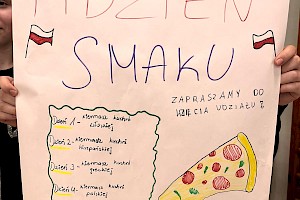 TYDZIEŃ
SMAKU
ZAPRASZAMY DO
WZIĘCIA UDZIAŁU!
Dzień 1 - kiermasz kuchni
włoskiej
Dzień 2 - kiermasz kuchni
hiszpańskiej
Dzień 3 - kiermasz kuchni
greckiej
Dzień 4 - kiermasz kuchni
polskiej